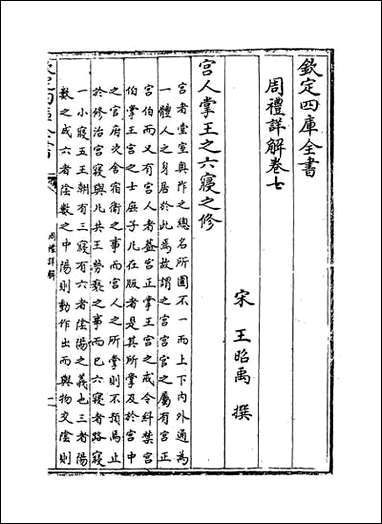 欽定四庫全書
周禮詳解卷七
宋 王昭禹 撰
宫人掌王之六寢之修
宫者堂室奥阼之總名所圍不一而上下内外通為
一體人之身居於此焉故謂之宫宫官之屬有宫正
宫伯而又有宫人者葢宫正掌王宫之戒令糾禁宫
伯掌王宫之士庶子凡在版者是其所掌及於宫中
之官府次舍宿衛之事而宫人之所掌則不預焉止
於修治宫寢與凡共王勞褻之事而已六寢者路寢
一小寢五王朝有三寢有六者陰陽之義也三者陽
數之成六者陰數之中陽則動作出而與物交陰則
周禮詳解